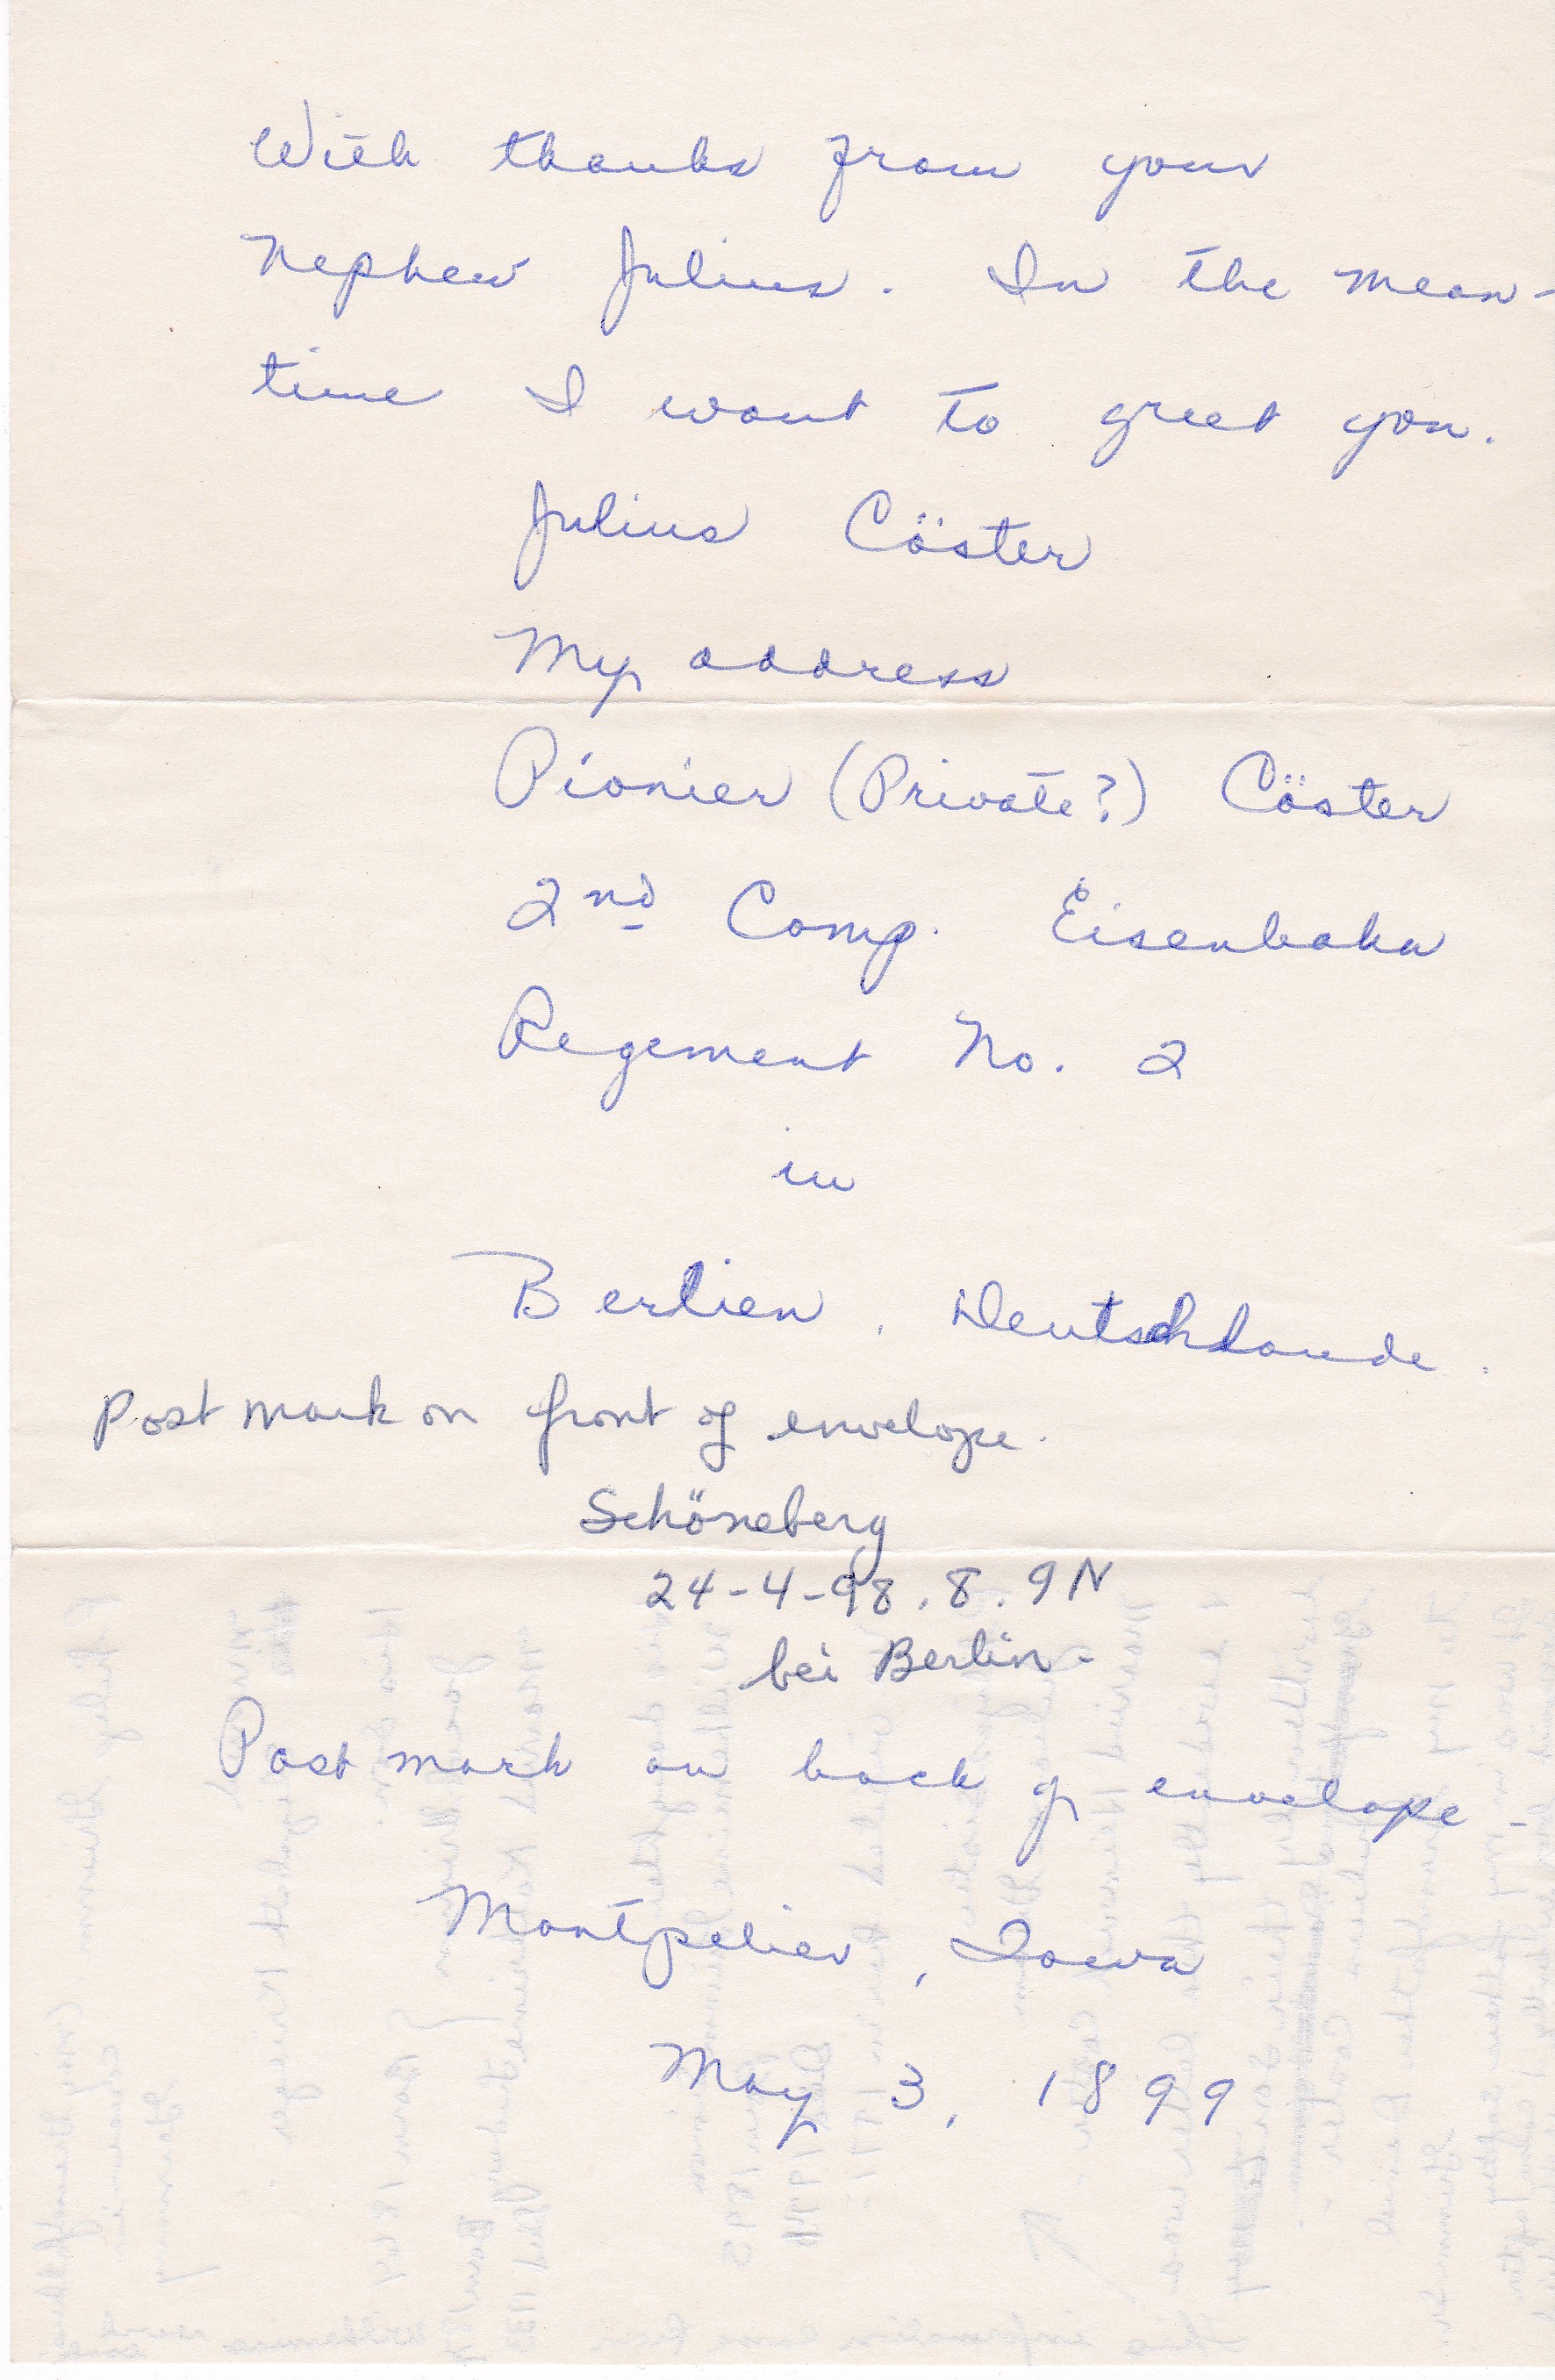 With thanks from your
nephew Julius. In the mean-
time I want to greet you.
Julius Cöster
My address
Pionier (Private?) Cöster
2nd Comp. Eisenbahn
Regement No. 2
in
Berlien, Deutschlande.
Post mark on front of envelope.
Schöneberg
24-4-98.8.9N
bei Berlin-
Post mark on back of envelope-
Montpelier, Iowa
May 3, 1899